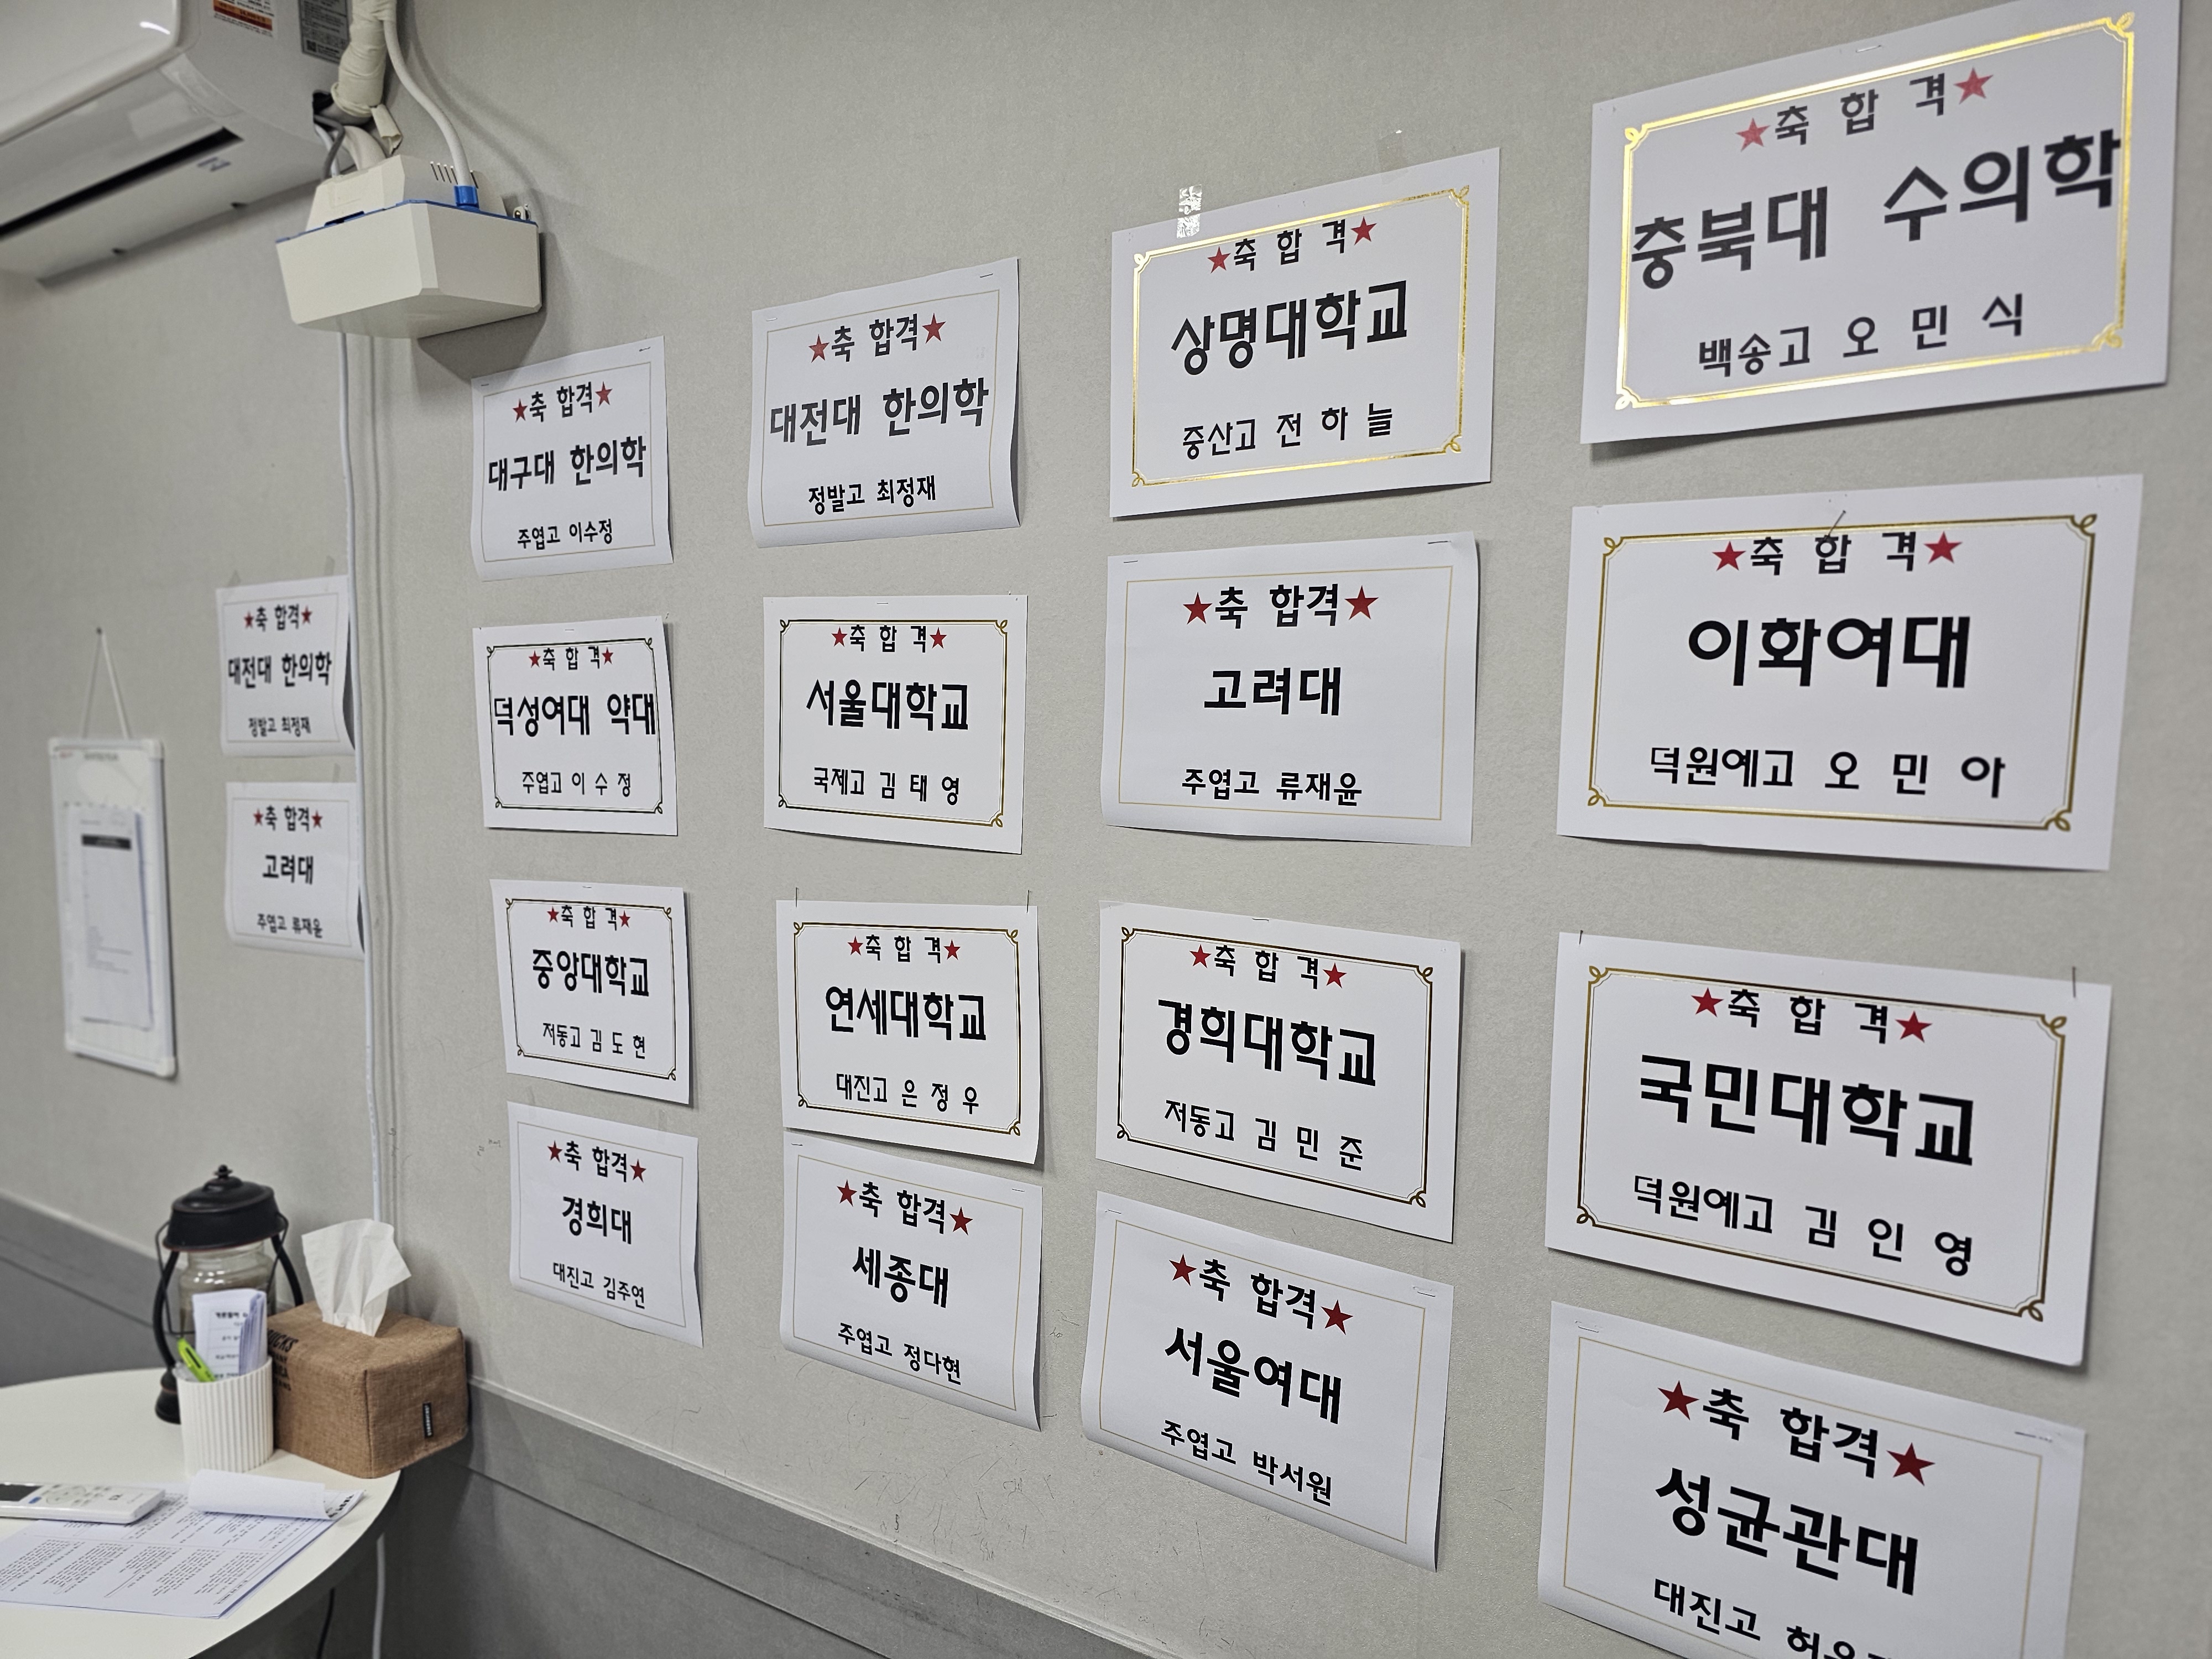 ★축 합격★
대전대 한의학
정발고 최정재
★축 합격★
고려대
주엽고 류재윤
★축 합격★
대구대 한의학
주엽고 이수정
★축 합 격★
덕성여대 약대
주엽고 이 수 정
★축 합 격★
중앙대학교
저동고 김 도 현
★축 합격★
경희대
대진고 김주연
★축 합격★
대전대 한의학
정발고 최정재
★축 합 격★
서울대학교
국제고 김 태 영
★축 합 격★
연세대학교
대진고 은 정 우
★축 합격★
세종대
주엽고 정다현
★축 합 격★
상명대학교
중산고 전 하 늘
★축 합격★
고려대
주엽고 류재윤
★축 합 격★
경희대학교
저동고 김 민 준
★축 합격★
서울여대
주엽고 박서원
★축 합 격★
충북대 수의학
백송고 오 민 식
★축 합 격★
이화여대
덕원예고 오 민 아
★축 합 격★
국민대학교
덕원예고 김 인 영
★축 합격★
성균관대
대진고